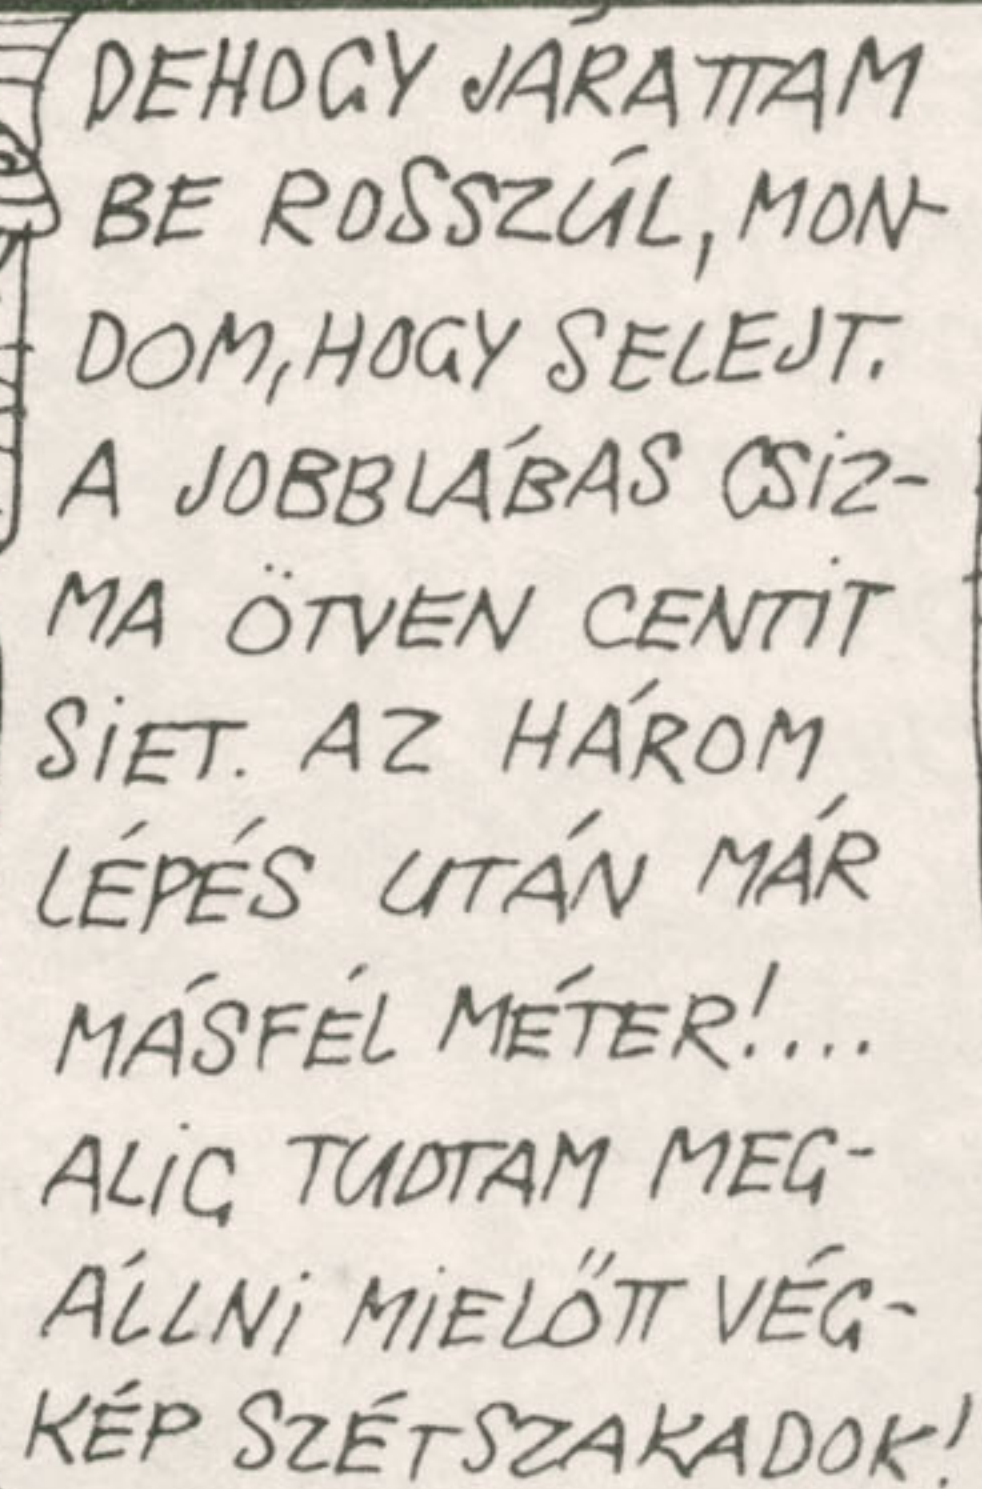 DEHOGY JÁRATTAM
BE ROSSZÚL, MON-
DOM, HOGY SELEJT.
A JOBBLÁBAS CSIZ-
MA ÖTVEN CENTIT
SIET. AZ HÁROM
LÉPÉS UTÁN MÁR
MÁSFÉL MÉTER!....
ALIG TUDTAM MEG-
ÁLLNI MIELŐTT VÉG-
KÉP SZÉTSZAKADOK!